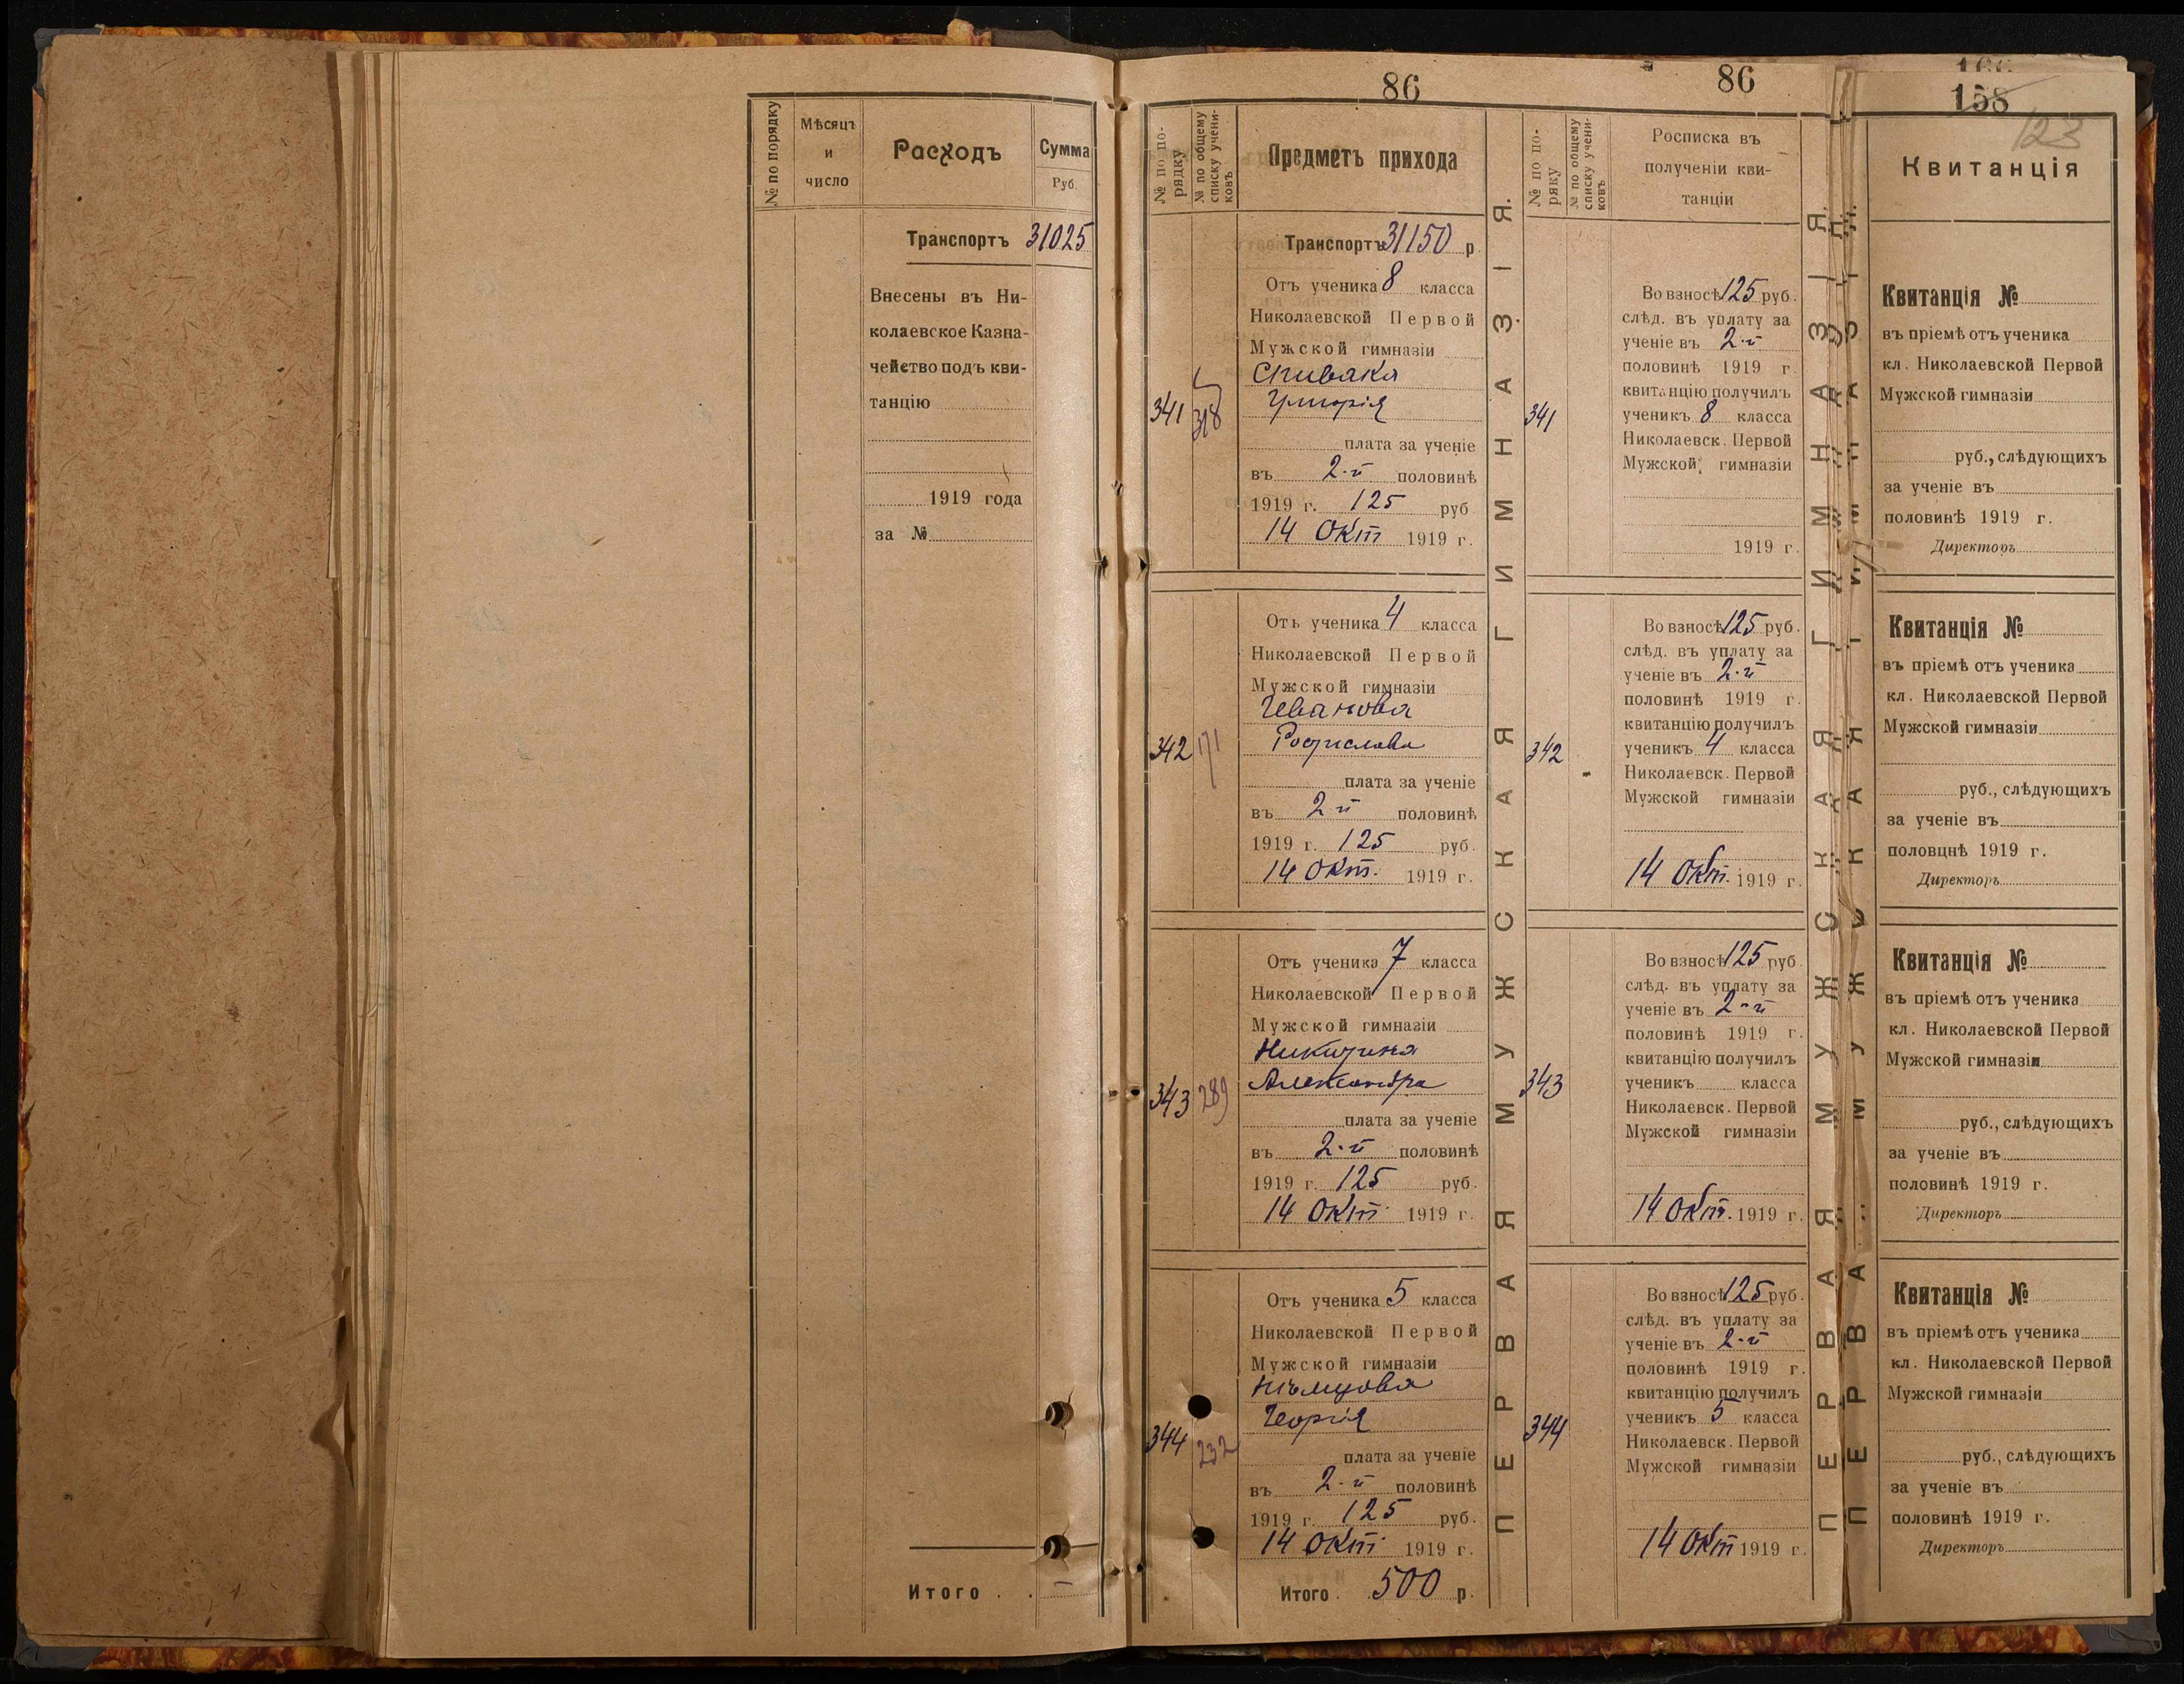 № по порядку
Мѣсяцъ
и
число
Расходъ
Сумма
Руб.
Транспортъ 31025
Внесены въ Ни-
колаевское Казна-
чейство подъ кви-
танцію
1919 года
за №
Итого . . —
86
№ по по-
рядку
№ по общему
списку учени-
ковъ
Предметъ прихода
Транспортъ 31150 р.
341
318
Отъ ученика 8 класса
Николаевской Первой
Мужской гимназіи
Спивака
Григорія
плата за ученіе
въ 2-й половинѣ
1919 г. 125 руб
14 Окт 1919 г.
342
171
Отъ ученика 4 класса
Николаевской Первой
Мужской гимназіи
Иванова
Ростислава
плата за ученіе
въ 2-й половинѣ
1919 г. 125 руб.
14 Окт. 1919 г.
343
289
Отъ ученика 7 класса
Николаевской Первой
Мужской гимназіи
Никитина
Александра
плата за ученіе
въ 2-й половинѣ
1919 г. 125 руб.
14 Окт. 1919 г.
344
232
Отъ ученика 5 класса
Николаевской Первой
Мужской гимназіи
Нѣмцова
Георгія
плата за ученіе
въ 2-й половинѣ
1919 г. 125 руб.
14 Окт. 1919 г.
Итого . 500 р.
ПЕРВАЯ МУЖСКАЯ ГИМНАЗІЯ.
86
№ по по-
ряку
№ по общему
списку учени-
ковъ
Росписка въ
полученіи кви-
танціи
341
Во взносѣ 125 руб.
слѣд. въ уплату за
ученіе въ 2-й
половинѣ 1919 г.
квитанцію получилъ
ученикъ 8 класса
Николаевск. Первой
Мужской гимназіи
1919 г.
342
Во взносѣ 125 руб.
слѣд. въ уплату за
ученіе въ 2-й
половинѣ 1919 г.
квитанцію получилъ
ученикъ 4 класса
Николаевск. Первой
Мужской гимназіи
14 Окт. 1919 г.
343
Во взносѣ 125 руб.
слѣд. въ уплату за
ученіе въ 2-й
половинѣ 1919 г.
квитанцію получилъ
ученикъ класса
Николаевск. Первой
Мужской гимназіи
14 Окт. 1919 г.
344
Во взносѣ 125 руб.
слѣд. въ уплату за
ученіе въ 2-й
половинѣ 1919 г.
квитанцію получилъ
ученикъ 5 класса
Николаевск. Первой
Мужской гимназіи
14 Окт 1919 г.
ПЕРВАЯ МУЖСКАЯ ГИМНАЗІЯ.
ПЕРВА МУЖСКАЯ
158
123
Квитанція
Квитанція №
въ пріемѣ отъ ученика
кл. Николаевской Первой
Мужской гимназіи
руб., слѣдующихъ
за ученіе въ
половинѣ 1919 г.
Директоръ
Квитанція №
въ пріемѣ отъ ученика
кл. Николаевской Первой
Мужской гимназіи
руб., слѣдующихъ
за ученіе въ
половцнѣ 1919 г.
Директоръ
Квитанція №
въ пріемѣ отъ ученика
кл. Николаевской Первой
Мужской гимназіи
руб., слѣдующихъ
за ученіе въ
половинѣ 1919 г.
Директоръ
Квитанція №
въ пріемѣ отъ ученика
кл. Николаевской Первой
Мужской гимназіи
руб., слѣдующихъ
за ученіе въ
половинѣ 1919 г.
Директоръ